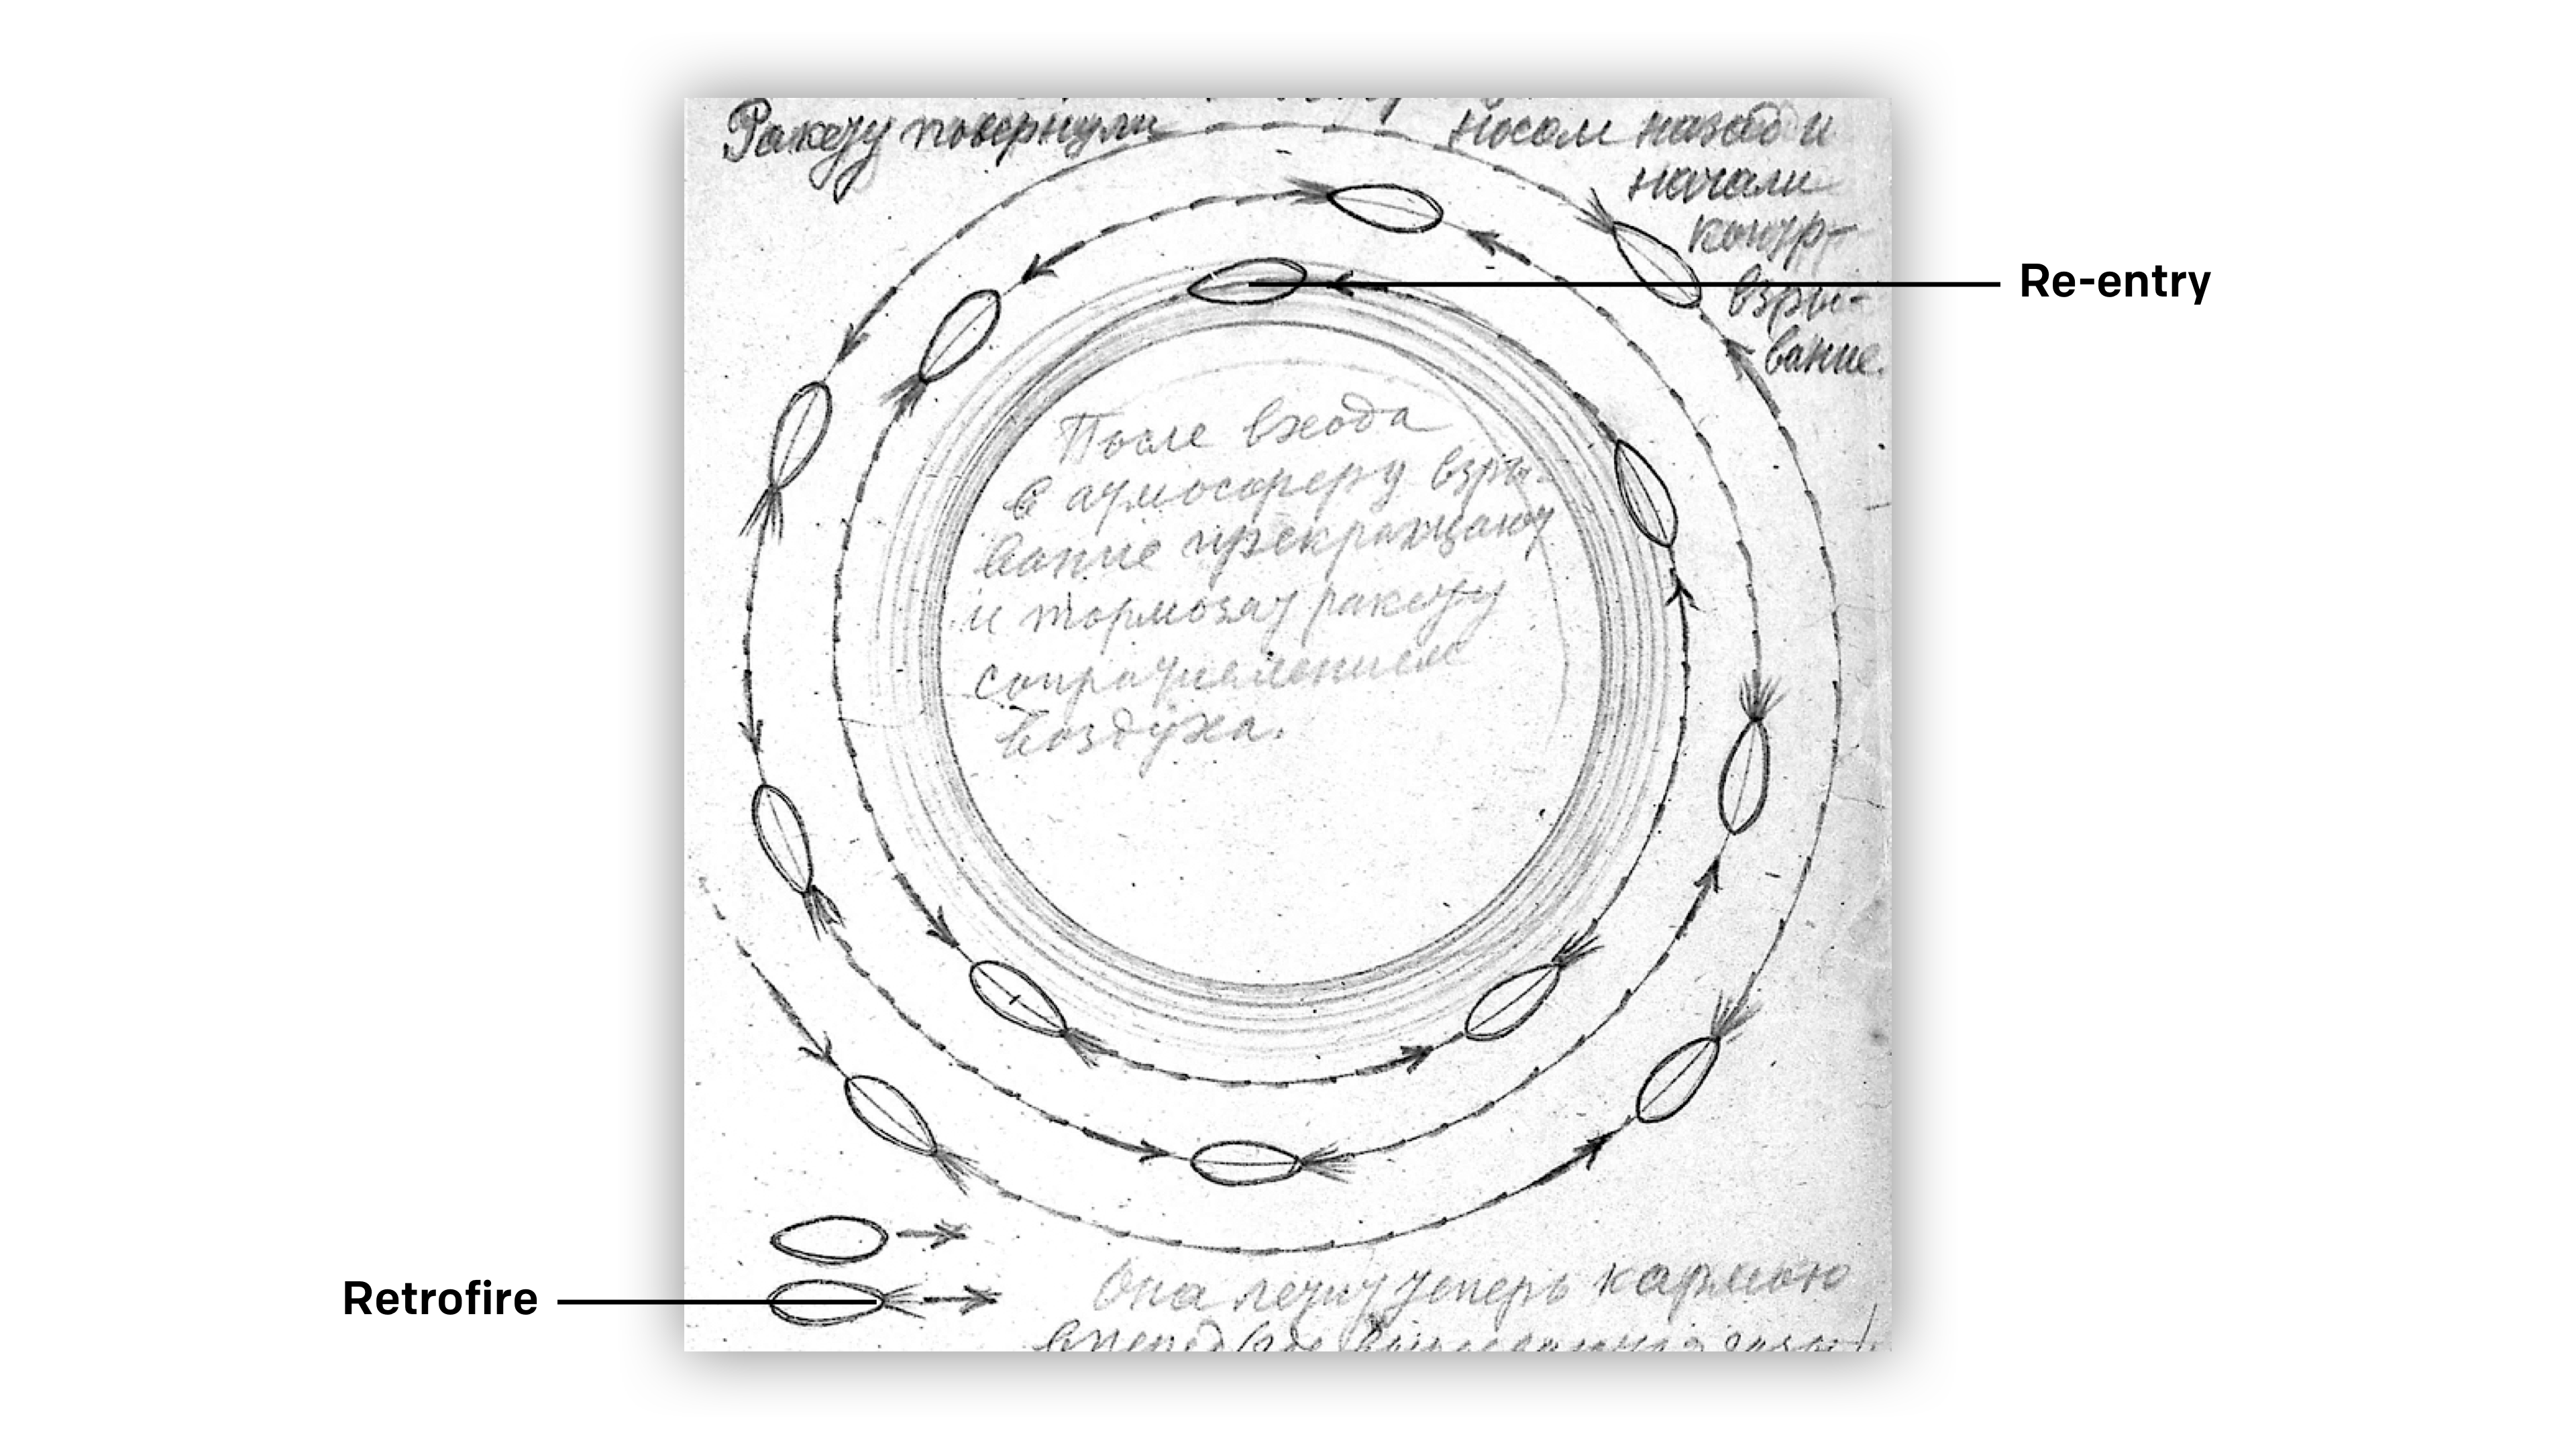 Ракету повернули носом назад и
начали
контр-
взры-
вание.
Re-entry
После входа
в атмосферу взры-
вание прекращают
и тормозят ракету
сопротивлением
воздуха.
Retrofire
Она летит теперь кормою
вперед